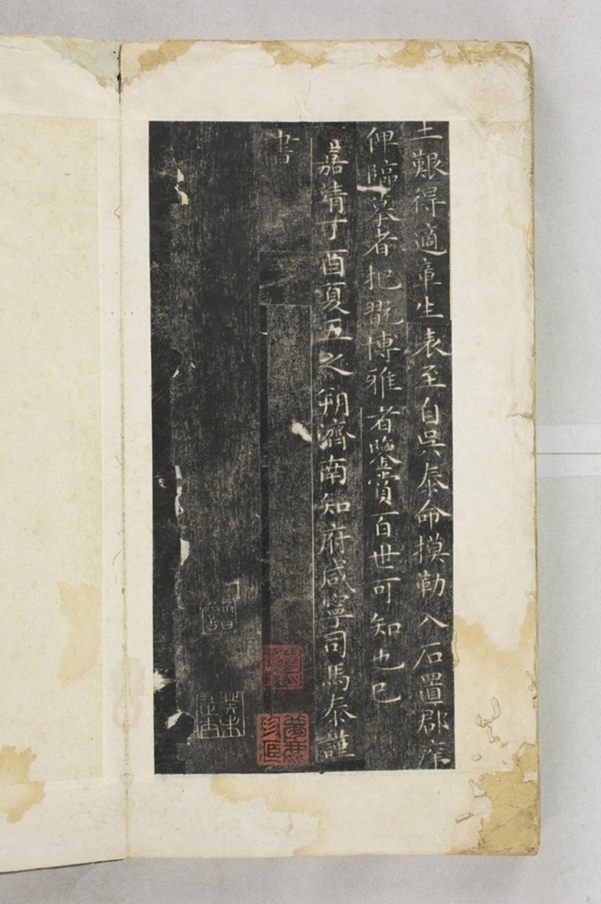 艱得適章生表至自吳泰命摸勒入石置郡庠
俾臨摹者把翫博雅者鑒賞百世可知也已
嘉靖丁酉夏五之朔濟南知府咸寧司馬泰謹
書